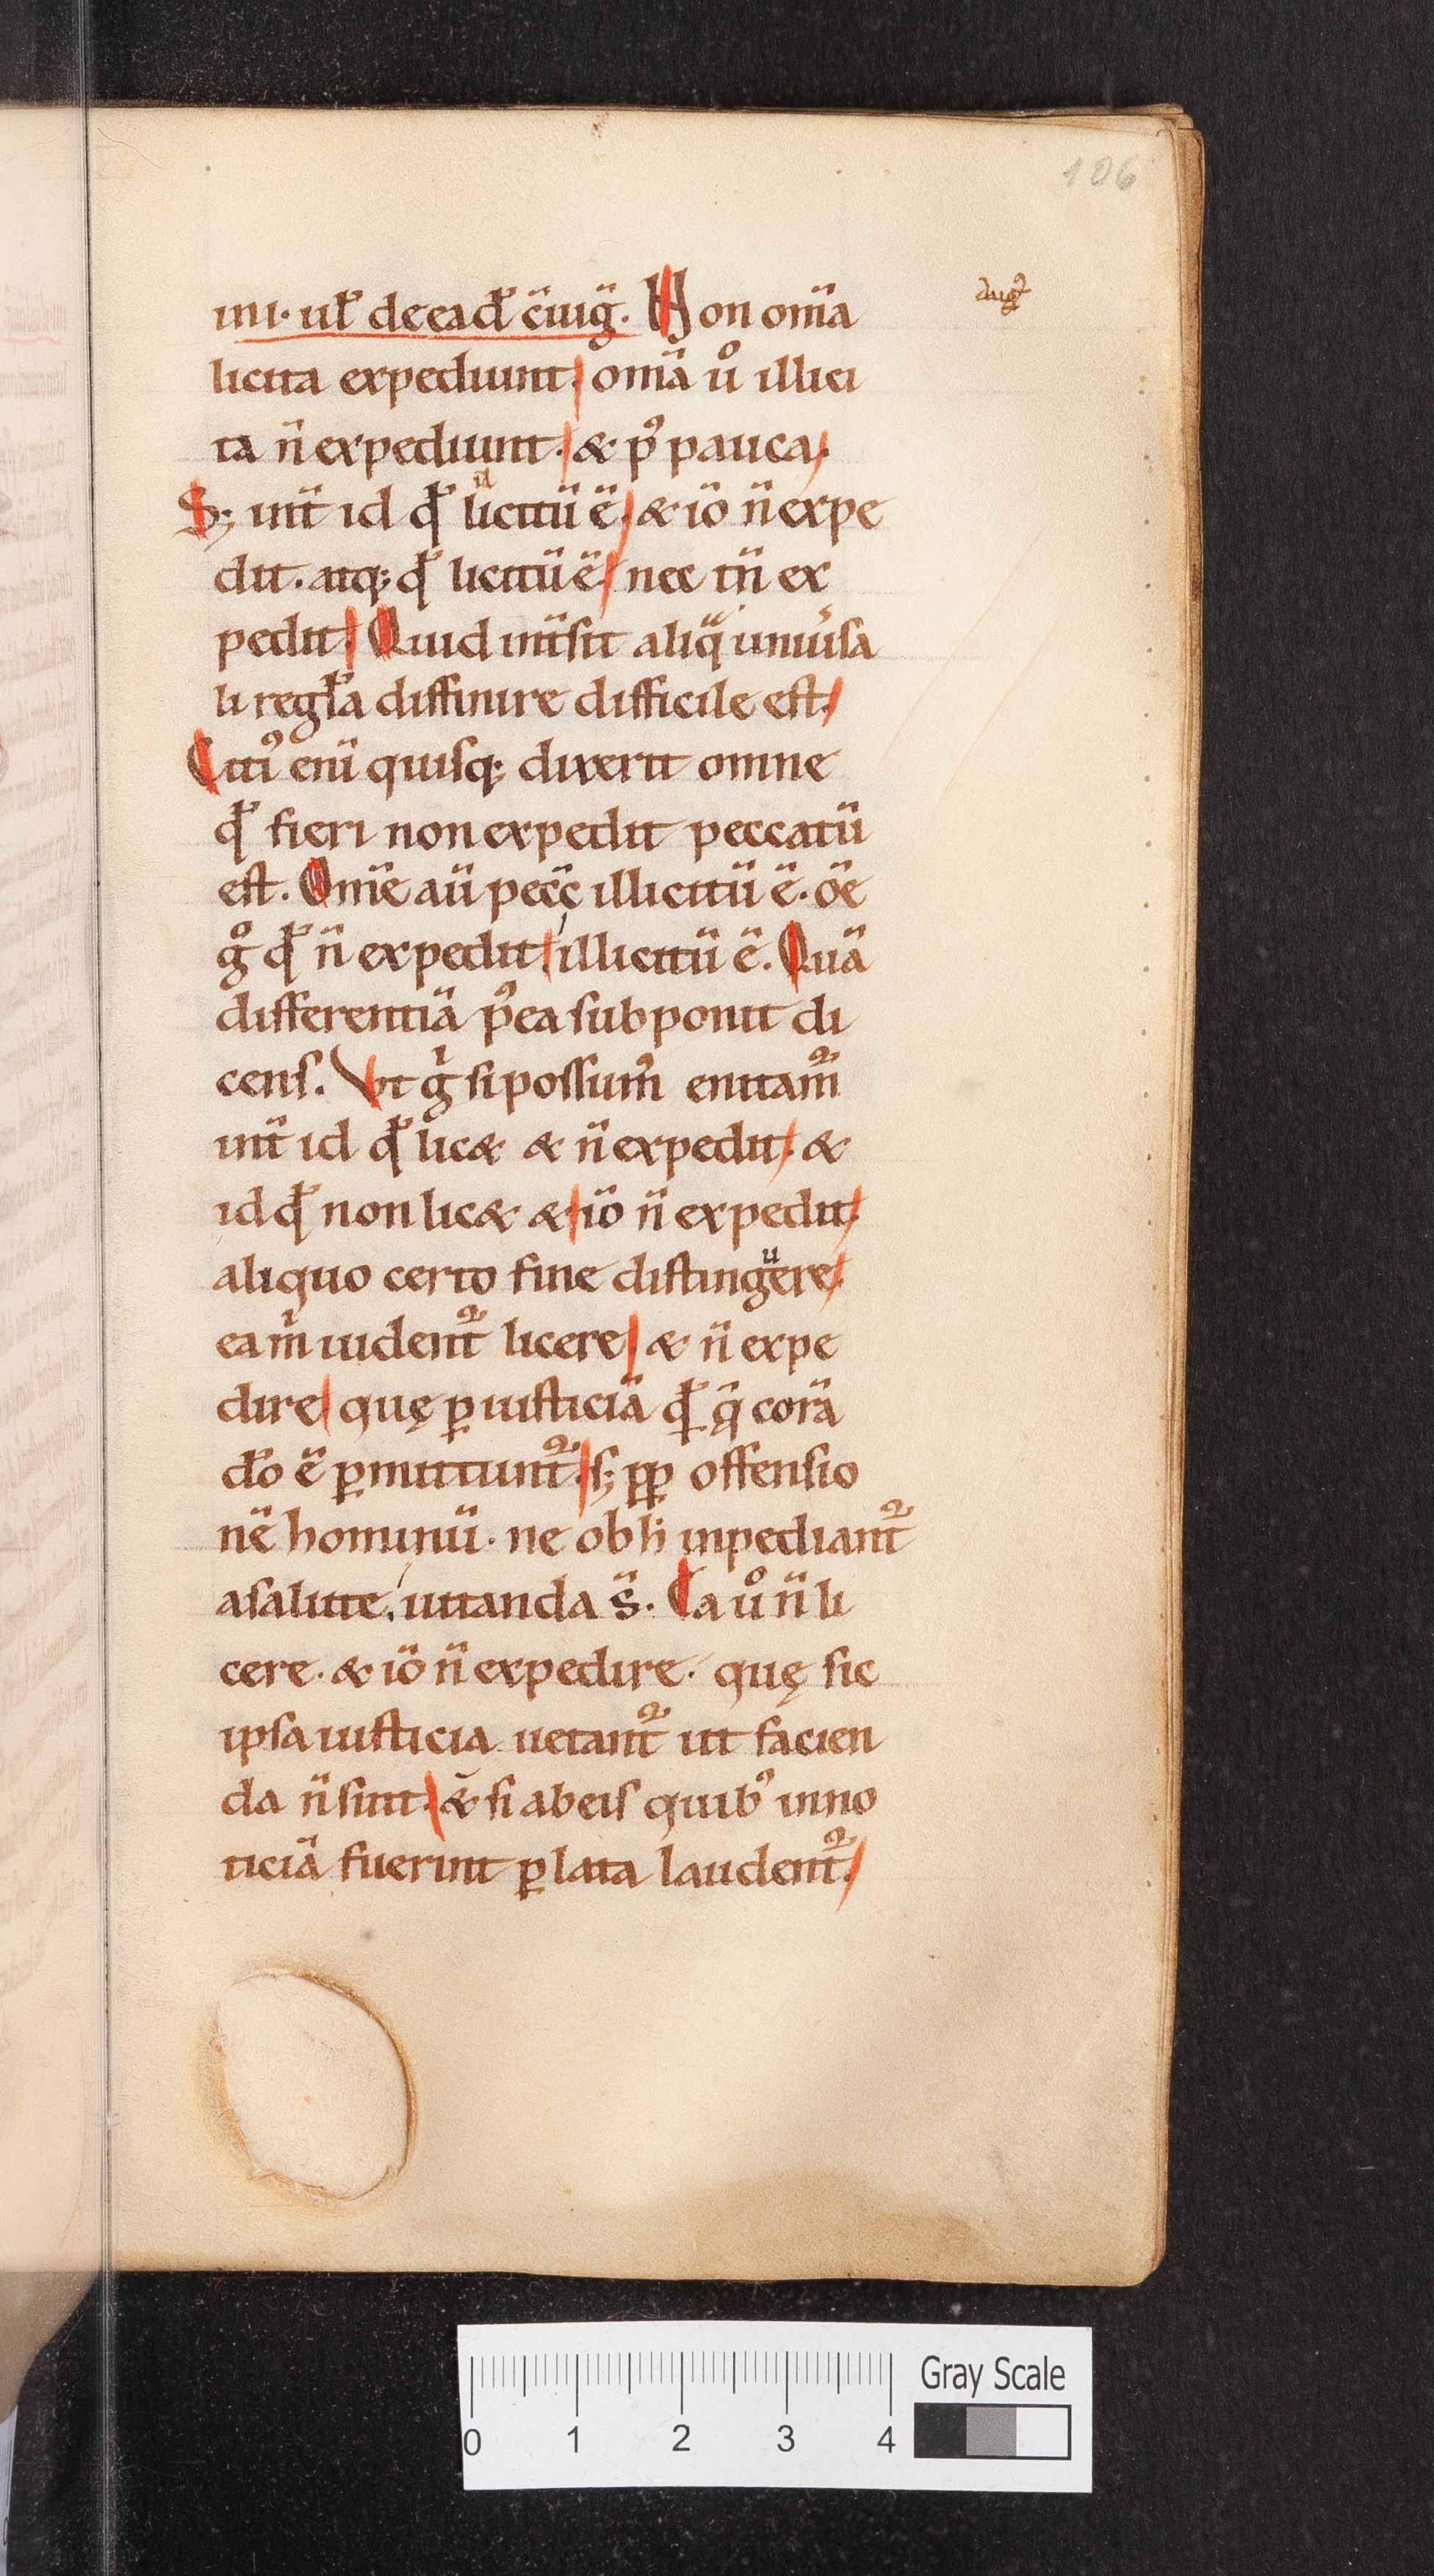 106
Augꝰ
iiii. ul̄ de ead̄ c̄iuḡ. Non om̄a
licita expediunt. om̄a uͦ illici
ta n̄ expediunt. & pꝰ pauca.
S; int̄ id qd̄ licitū ē. & iō n̄ expe
dit. atq; qd̄ licitū ē. nec tn̄ ex
pedit. Quid int̄sit aliqᵃ uniu̓sa
li regl̄a diffinire difficile est.
Citiꝰ enī quisq; dixerit omne
qd̄ fieri non expedit peccatū
est. Om̄e aū pecc̄ illicitū ē. ōe
gͦ qd̄ n̄ expedit. illicitū ē. Quā
differentiā pꝰea subponit di
cens. Vt gͥ si possumꝰ enitam̄
int̄ id qd̄ lic& & n̄ expedit. &
id qd̄ non lic& & iō n̄ expedit.
aliquo certo fine distinguere.
ea mͥ uident᷑ licere. & n̄ expe
dire quę ꝑ iusticiā qd̄ q̄ corā
dō ē ꝑmittunt᷑. s; ꝓp offensio
nē hominū. ne ob h̄ inpediant᷑
a salute, uitanda s̄. Ea uͦ n̄ li
cere. & iō n̄ expedire. quę sic
ipsa iusticia uetant᷑ ut facien
da n̄ sint. &̄ si ab eis quibꝰ in no
ticiā fuerint ꝑlata laudent᷑.
Gray Scale
0 1 2 3 4